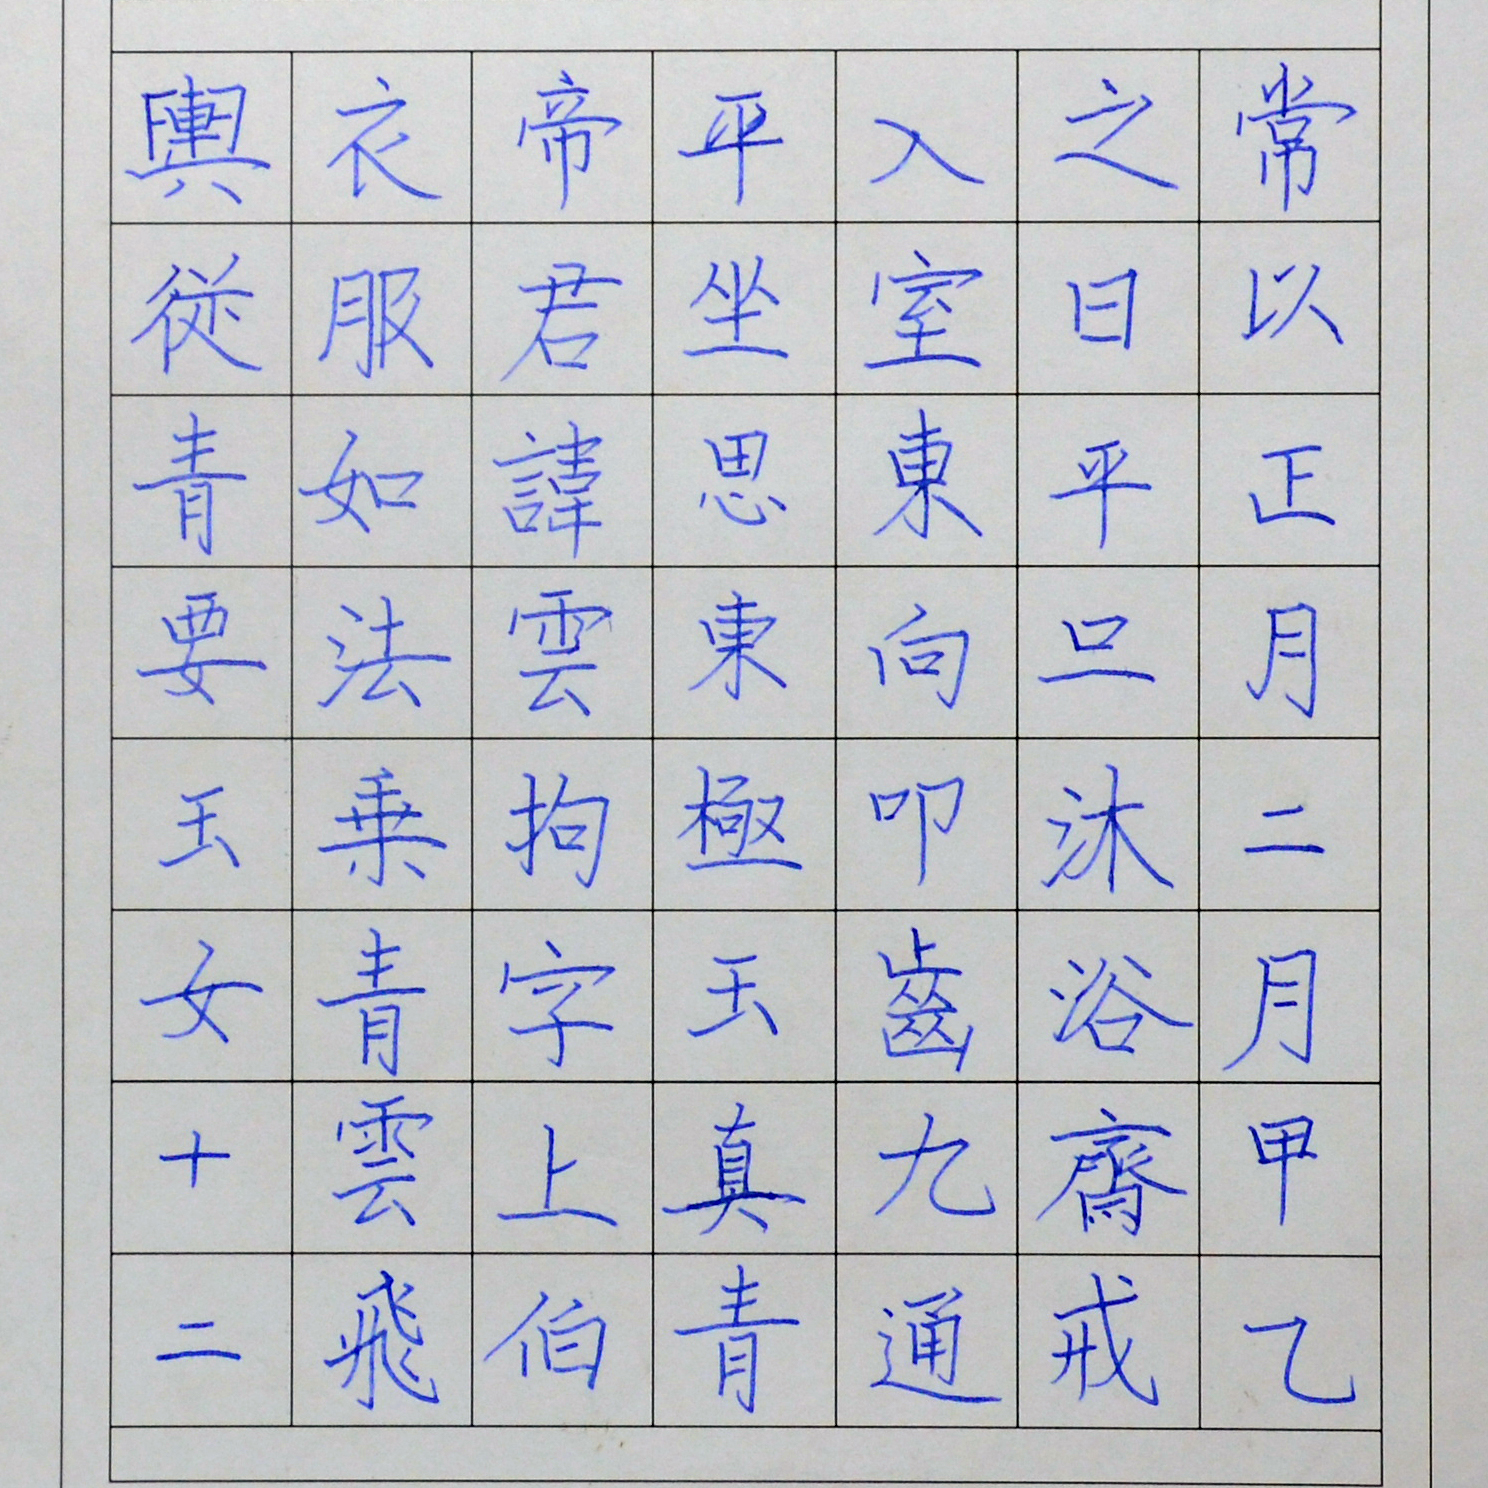 常以正月二月甲乙
之日平旦沐浴齋戒
入室東向叩齒九通
平坐思東極玉真青
帝君諱雲拘字上伯
衣服如法乘青雲飛
輿從青要玉女十二